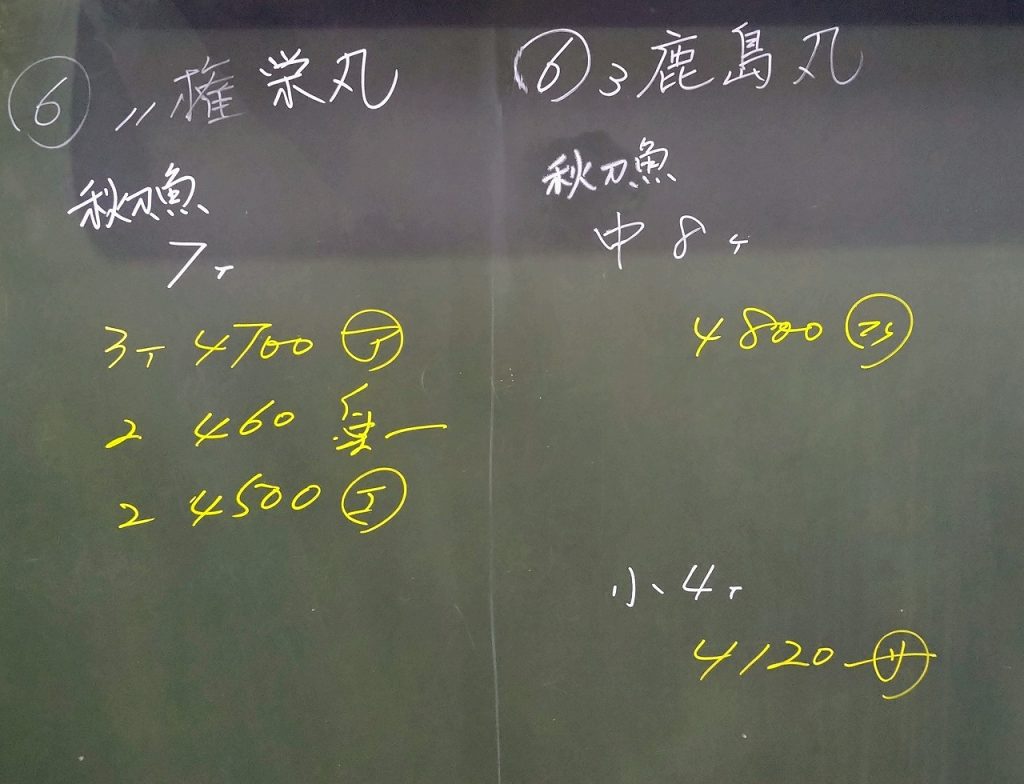 ⑥ 〃権栄丸
秋刀魚
7T
3T 4700
2 460
2 4500
⑥ 3鹿島丸
秋刀魚
中 8T
4800
小 4T
4120